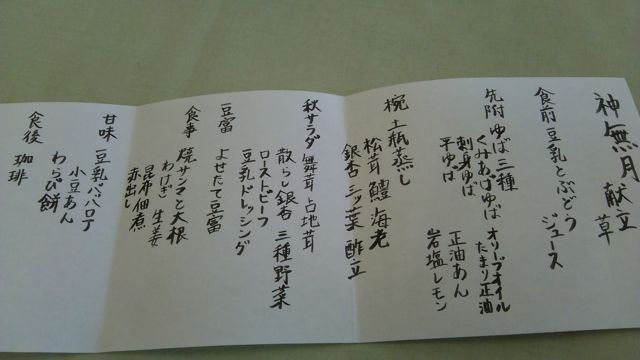 神無月 献立
草
食前 豆乳とぶどう
ジュース
先附 ゆば三種
くみあげゆば オリーブオイル
たまり正油
刺身ゆば 正油あん
平ゆば 岩塩レモン
椀 土瓶蒸し
松茸 鱧 海老
銀杏 三ッ葉 酢立
秋サラダ 舞茸 占地茸
散らし銀杏 三種野菜
ローストビーフ
豆乳ドレッシング
豆富 よせたて豆富
食事 焼サンマと大根
わけぎ 生姜
昆布佃煮
赤出し
甘味 豆乳ババロア
小豆あん
わらび餅
食後 珈琲